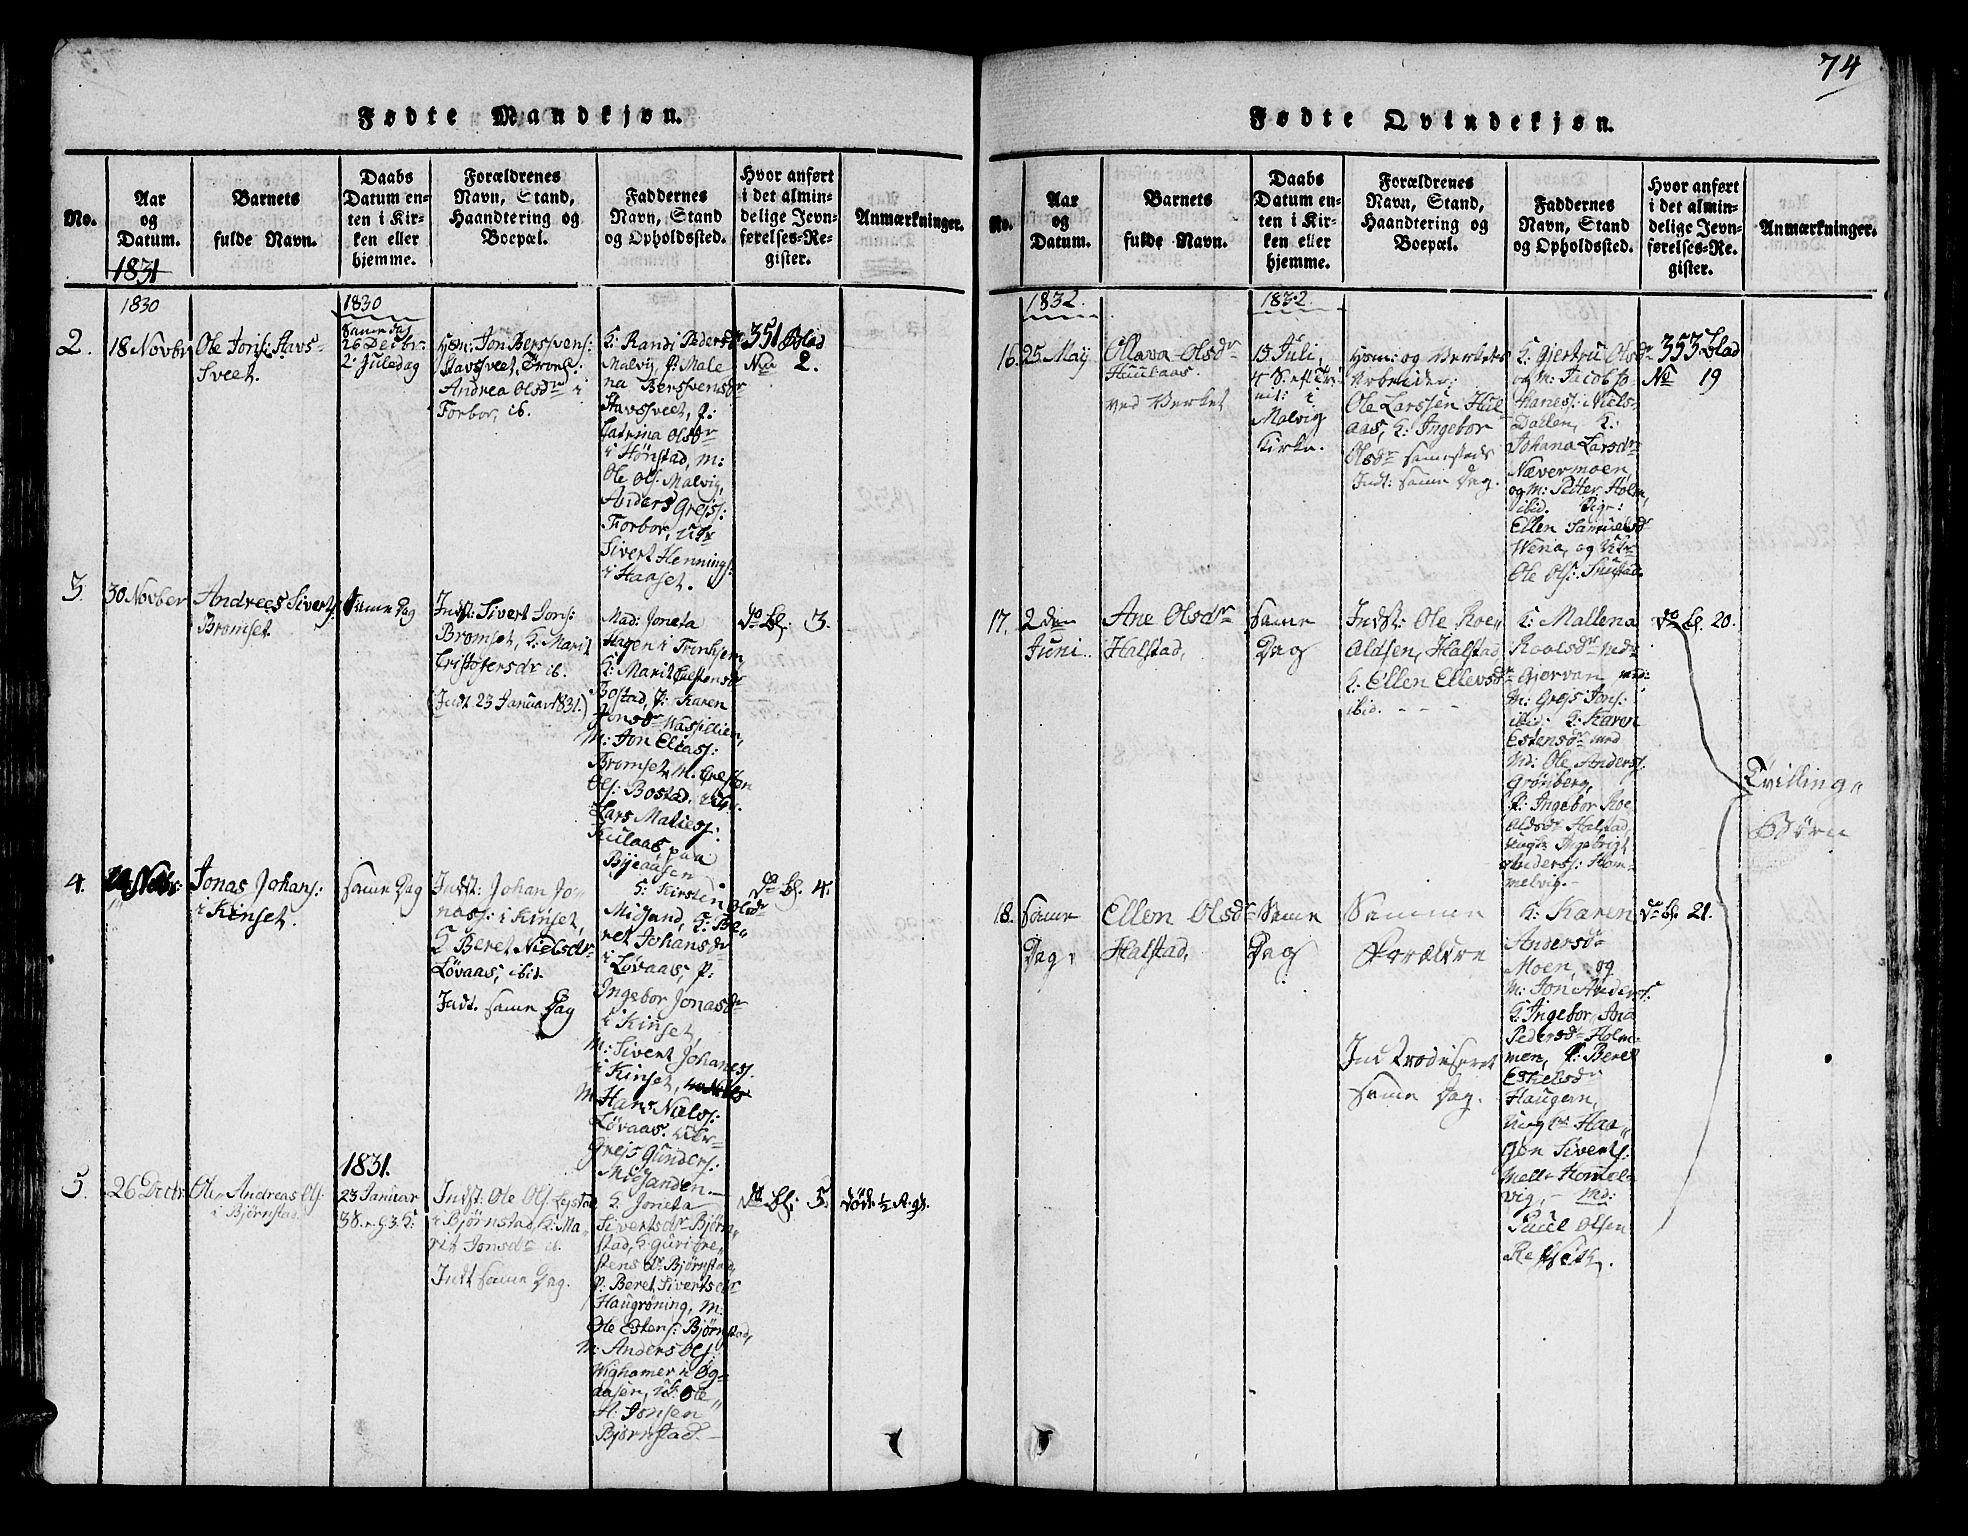 74
Fødte Mandkjøn.
No.
Aar
og
Datum.
Barnets
fulde Navn.
Daabs
Datum en-
ten i Kir-
ken eller
hjemme.
Forældrenes
Navn, Stand,
Haandtering og
Boepæl.
Faddernes
Navn, Stand
og Opholdssted.
Hvor anført
i det almin-
delige Jevn-
førelses-Re-
gister.
Anmærkninger.
1831
1830
1830
2.
18 Novbr
Ole Jons: Stavs-
Sveet.
Samedag
26 Decbr
2. Juledag
Hsm: Jon Bersvens:
Stavssveet,
Andrea Olsdr i
Forbor, ib.
K. Randi Pedersdr
Malvig, P: Male
na Bersvensdr
Stavssveet, P:
Catrina Olsdr
i Hønstad, M:
Ole Ols: Malvig,
Anders Grejs:
Forbor,
Sivert Hennings:
i Haaset.
351 Blad
No 2.
3.
30 Novber
Andreas Sivert:
Bromset.
Same Dag
Indst: Sivert Jons:
Bromset, K: Marit
Cristofersdr ib.
(Indt. 23 Januar 1831.)
Mad: Joneta
Hagen i Tronhjem,
K: Marit
Bostad, P: Karen
Jonsdr
M: Jon Elias:
Bromset, M.
Ols: Bostad,
Lars
paa
do bl: 3.
4.
Jonas Johans:
i Kinset.
Same Dag
Indst: Johan Jo-
nas: i Kinset,
K Beret Nielsdr
Løvaas, ibid.
Indt. same Dag
K: Kirsten Olsdr
Midsand, K: Be-
ret Johansdr
i Løvaas, P:
Ingebor Jonasdr
i Kinset,
M: Sivert Johanes:
i Kinset,
M Hans Niels:
Løvaas.
Grejs Gunders:
Midsanden.
do bl. 4.
5.
26 Decbr
Ole Andreas Ols:
i Bjørnstad.
1831.
23 Januar
Indst: Ole Ols
i Bjørnstad, K: Ma-
rit Jonsdr ib.
Indt same Dag.
K. Joneta
Sivertsdr Bjørn-
stad, K Guri Cre-
stensdr Bjørnstad,
P: Beret Sivertsdr
Haugrøning, M:
Ole Estens: Bjørnstad,
M: Anders Ols
Ole
H: Jonsen
Bjørnstad.
do bl: 5.
død
Fødte Qvindekjøn.
No.
Aar
og
Datum.
Barnets
fulde Navn.
Daabs
Datum en-
ten i Kir-
ken eller
hjemme.
Forældrenes
Navn, Stand,
Haandtering og
Boepæl.
Faddernes
Navn, Stand
og Opholdssted.
Hvor anført
i det almin-
delige Jevn-
førelses-Re-
gister.
Anmærkninger.
1832.
1832
16.
25 Maij
Ellava Olsdr
Huulaas.
ved Verket
15 Juli,
4 S. eft Tri
nit: i
Malvig
Kirke.
Hsm: og Verkets
Arbeider:
Ole Larssen Hul
aas, K: Ingebor
Olsdr samesteds
Indt: same Dag.
K: Gjertru Olsdr
og M: Jacob Jo
hanes: Niels-
Dailen, K:
Johana Larsdr
Nævermoen,
og M: Petter Holm,
ibid. Pige:
Ellen Samuelsdr
Weria, og
Ole Ols:
353 Blad
No 19
17.
2 den
Juni
Ane Olsdr
Halstad,
Same
Dag
Indst: Ole Roe-
aldsen, Halstad
K: Ellen Ellevsdr
ibid.
K: Mallena
Roalsdr
Gjervan
M: Grejs Jons:
ibid: K: Karen
Estensdr med
Md: Ole Anders:
Grønberg,
P: Ingebor Roe
Aldsdr Halstad,
Ingebrigt
Anders: Hom-
melvig.
do bl. 20.
Tvilling-
Børn
18.
Same
Dag,
Ellen Olsdr
Halstad,
Same
Dag
Samme
Forældre
Introduseret
same Dag.
K: Karen
Andersdr
Moen, og
M: Jon Anders:
K: Ingebor Ana
Pedersdr Holm-
men, P: Beret
Eskelsdr
Haugern,
Sivert:
vig, Md:
Paul Olsen
do bl. 21.